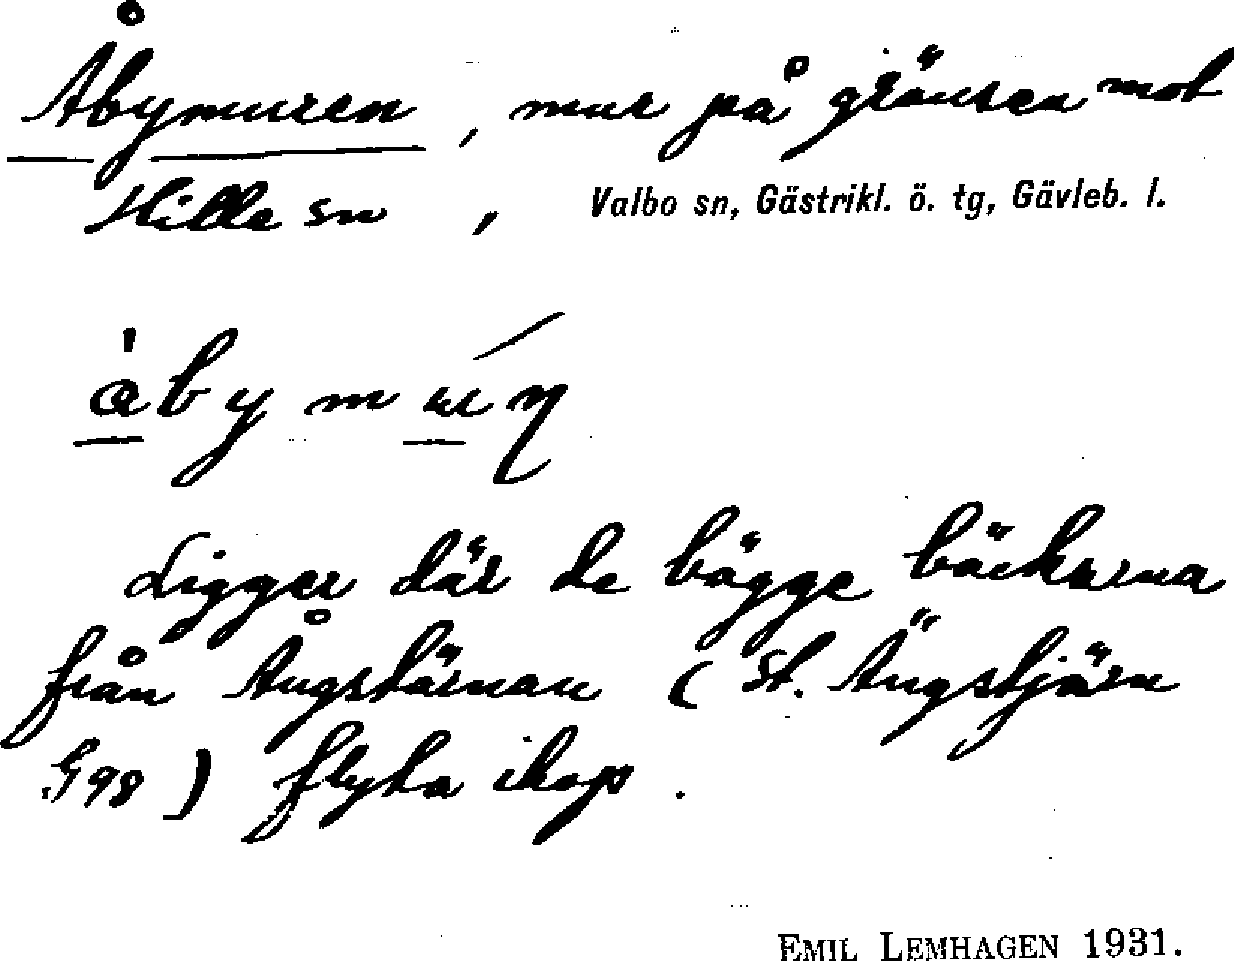 Åbymuren, mur på gränsen mot
Hille sn, Valbo sn, Gästrikl. ö. tg, Gävleb. l.
åbymuŋ
Ligger där de bägge bäckarna
från Ångstärnan (St. Ängstjärn
G98) flyta ihop.
EMIL LEMHAGEN 1931.